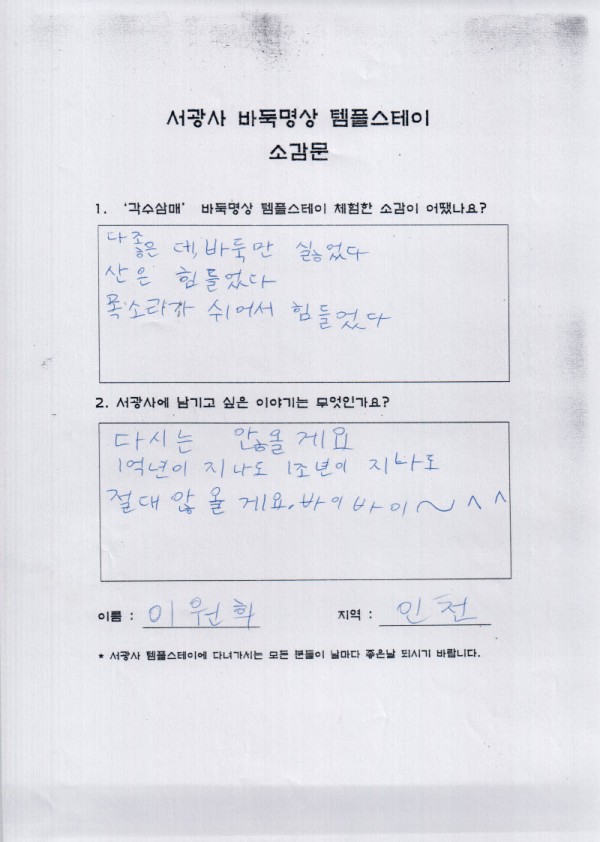 서광사 바둑명상 템플스테이
소감문
1. ‘각수삼매’ 바둑명상 템플스테이 체험한 소감이 어땠나요?
다 좋은 데, 바둑만 싫었다
산은 힘들었다
목소리가 쉬어서 힘들었다
2. 서광사에 남기고 싶은 이야기는 무엇인가요?
다시는 않올게요
1억년이 지나도 1조년이 지나도
절대 않 올게요. 바이바이~^^
이름 : 이원학
지역 : 인천
* 서광사 템플스테이에 다녀가시는 모든 분들이 날마다 좋은날 되시기 바랍니다.